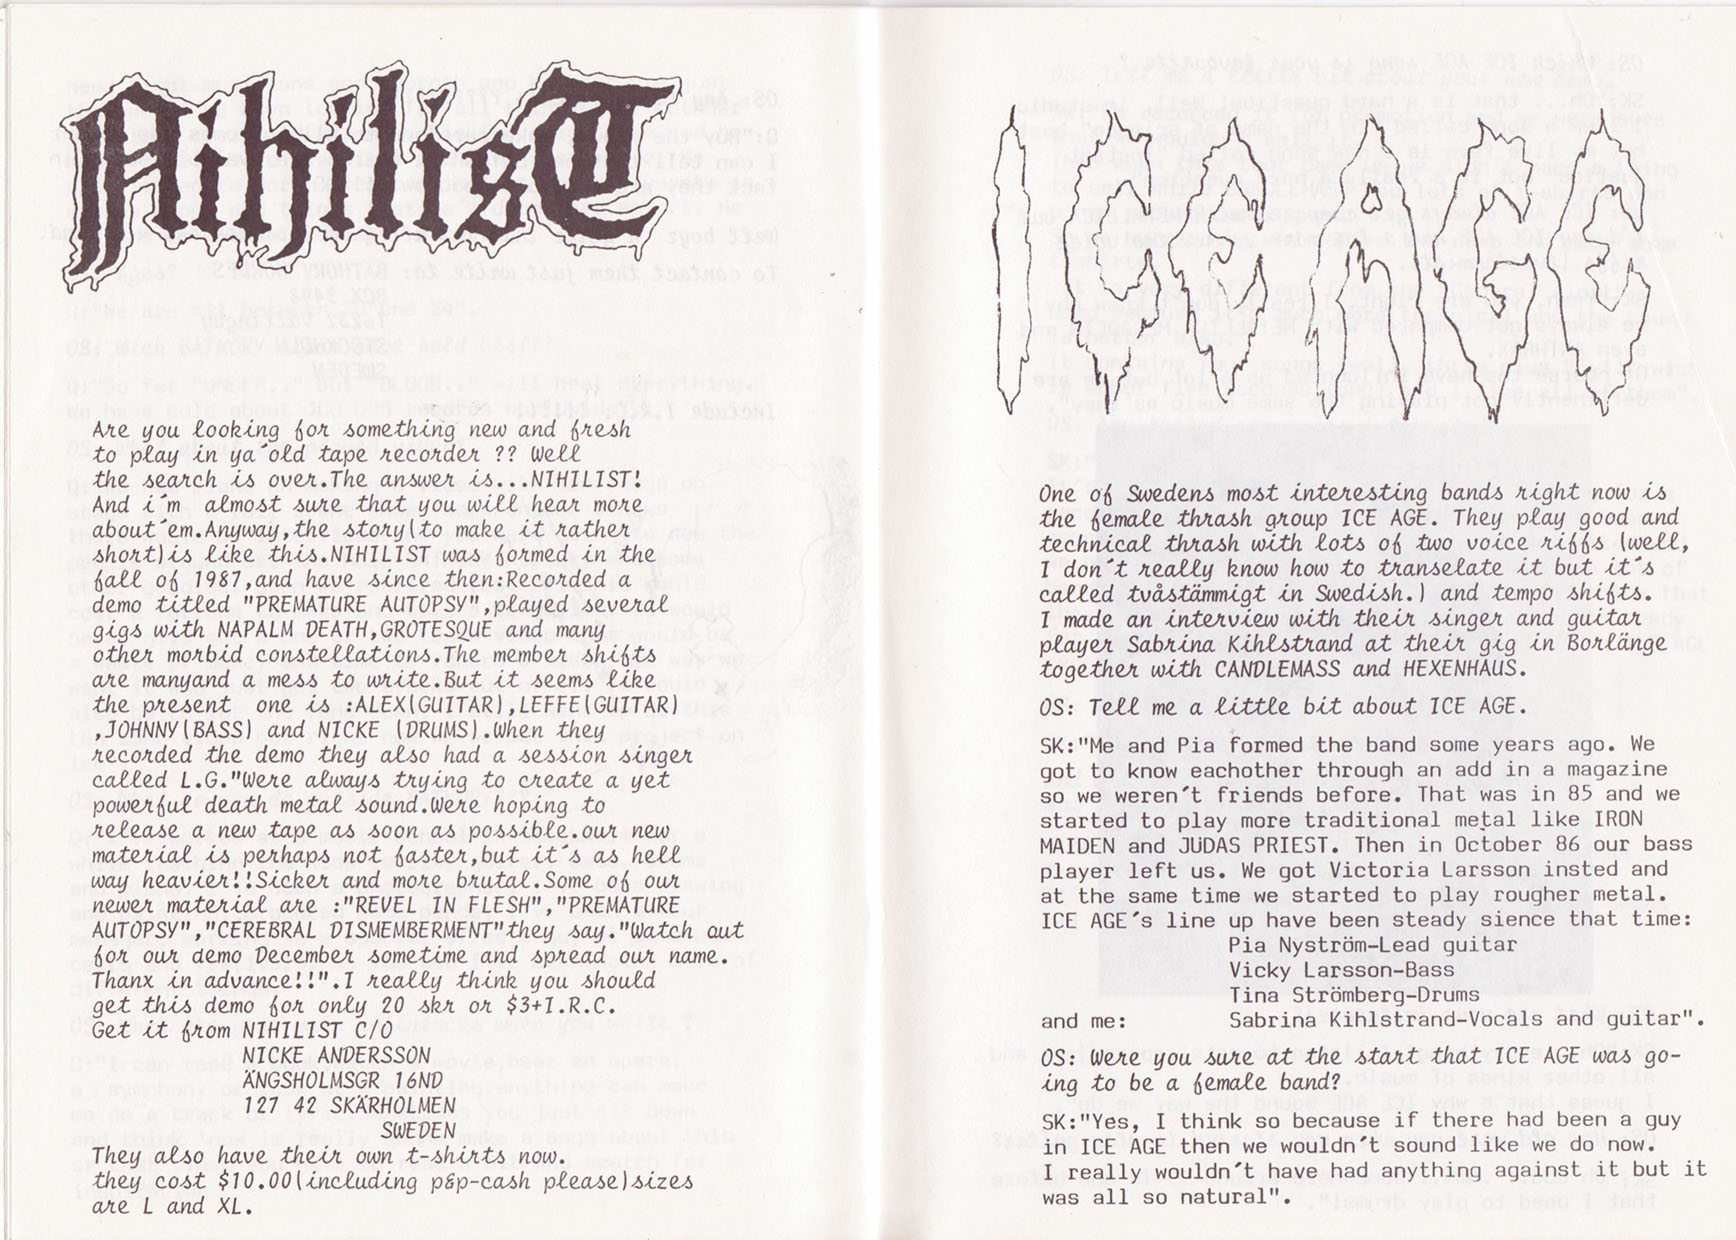 Nihilist
Are you looking for something new and fresh
to play in ya´old tape recorder ?? Well
the search is over.The answer is...NIHILIST!
And i´m  almost sure that you will hear more
about´em.Anyway,the story(to make it rather
short)is like this.NIHILIST was formed in the
fall of 1987,and have since then:Recorded a
demo titled "PREMATURE AUTOPSY",played several
gigs with NAPALM DEATH,GROTESQUE and many
other morbid constellations.The member shifts
are manyand a mess to write.But it seems like
the present  one is :ALEX(GUITAR),LEFFE(GUITAR)
,JOHNNY(BASS) and NICKE (DRUMS).When they
recorded the demo they also had a session singer
called L.G."Were always trying to create a yet
powerful death metal sound.Were hoping to
release a new tape as soon as possible.our new
material is perhaps not faster,but it´s as hell
way heavier!!Sicker and more brutal.Some of our
newer material are :"REVEL IN FLESH","PREMATURE
AUTOPSY","CEREBRAL DISMEMBERMENT"they say."Watch out
for our demo December sometime and spread our name.
Thanx in advance!!".I really think you should
get this demo for only 20 skr or $3+I.R.C.
Get it from NIHILIST C/O
NICKE ANDERSSON
ÄNGSHOLMSGR 16ND
127 42 SKÄRHOLMEN
SWEDEN
They also have their own t-shirts now.
they cost $10.00(including p&p-cash please)sizes
are L and XL.
ICE AGE
One of Swedens most interesting bands right now is
the female thrash group ICE AGE. They play good and
technical thrash with lots of two voice riffs (well,
I don´t really know how to transelate it but it´s
called tvåstämmigt in Swedish.) and tempo shifts.
I made an interview with their singer and guitar
player Sabrina Kihlstrand at their gig in Borlänge
together with CANDLEMASS and HEXENHAUS.
OS: Tell me a little bit about ICE AGE.
SK:"Me and Pia formed the band some years ago. We
got to know eachother through an add in a magazine
so we weren´t friends before. That was in 85 and we
started to play more traditional metal like IRON
MAIDEN and JUDAS PRIEST. Then in October 86 our bass
player left us. We got Victoria Larsson insted and
at the same time we started to play rougher metal.
ICE AGE´s line up have been steady sience that time:
Pia Nyström-Lead guitar
Vicky Larsson-Bass
Tina Strömberg-Drums
and me: Sabrina Kihlstrand-Vocals and guitar".
OS: Were you sure at the start that ICE AGE was go-
ing to be a female band?
SK:"Yes, I think so because if there had been a guy
in ICE AGE then we wouldn´t sound like we do now.
I really wouldn´t have had anything against it but it
was all so natural".